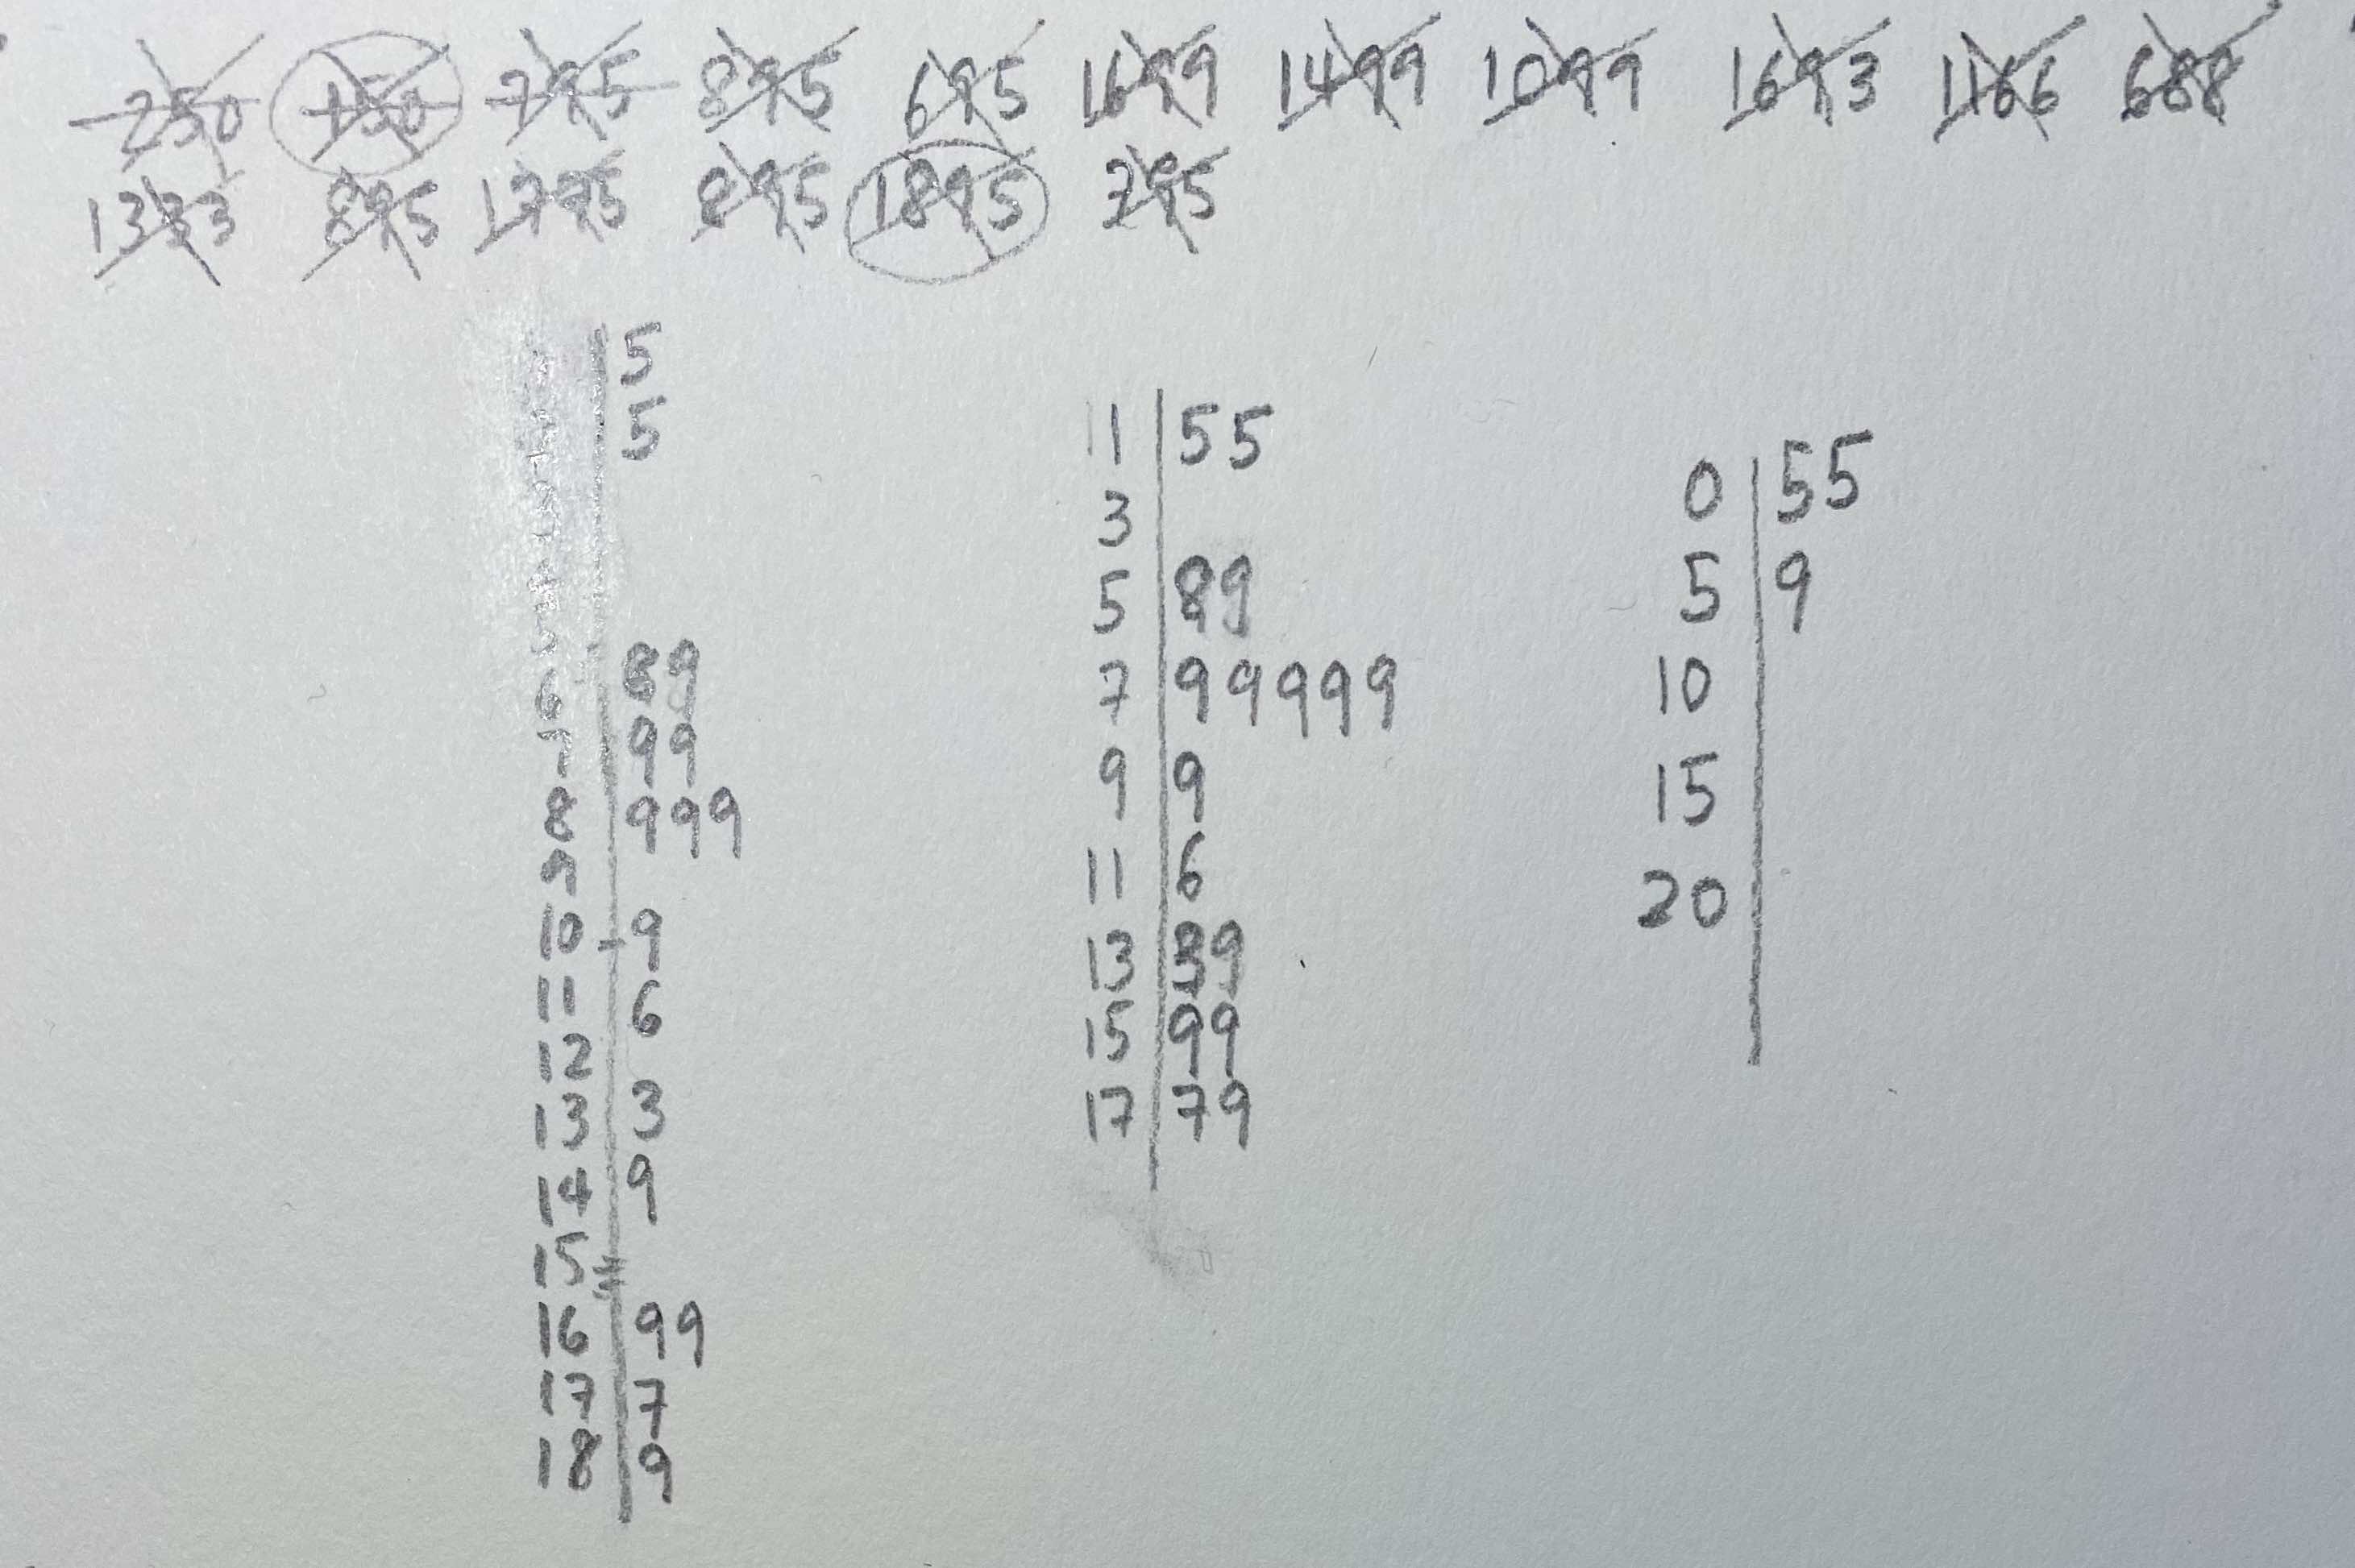 250 150 795 895 695 1699 1499 1099 1693 1166 688
1333 895 1775 895 1895 795
5
5
6 89
7 99
8 999
9
10 9
11 6
12
13 3
14 9
15
16 99
17 7
18 9
11 55
3
5 89
7 99999
9 9
11 6
13 39
15 99
17 79
0 55
5 9
10
15
20